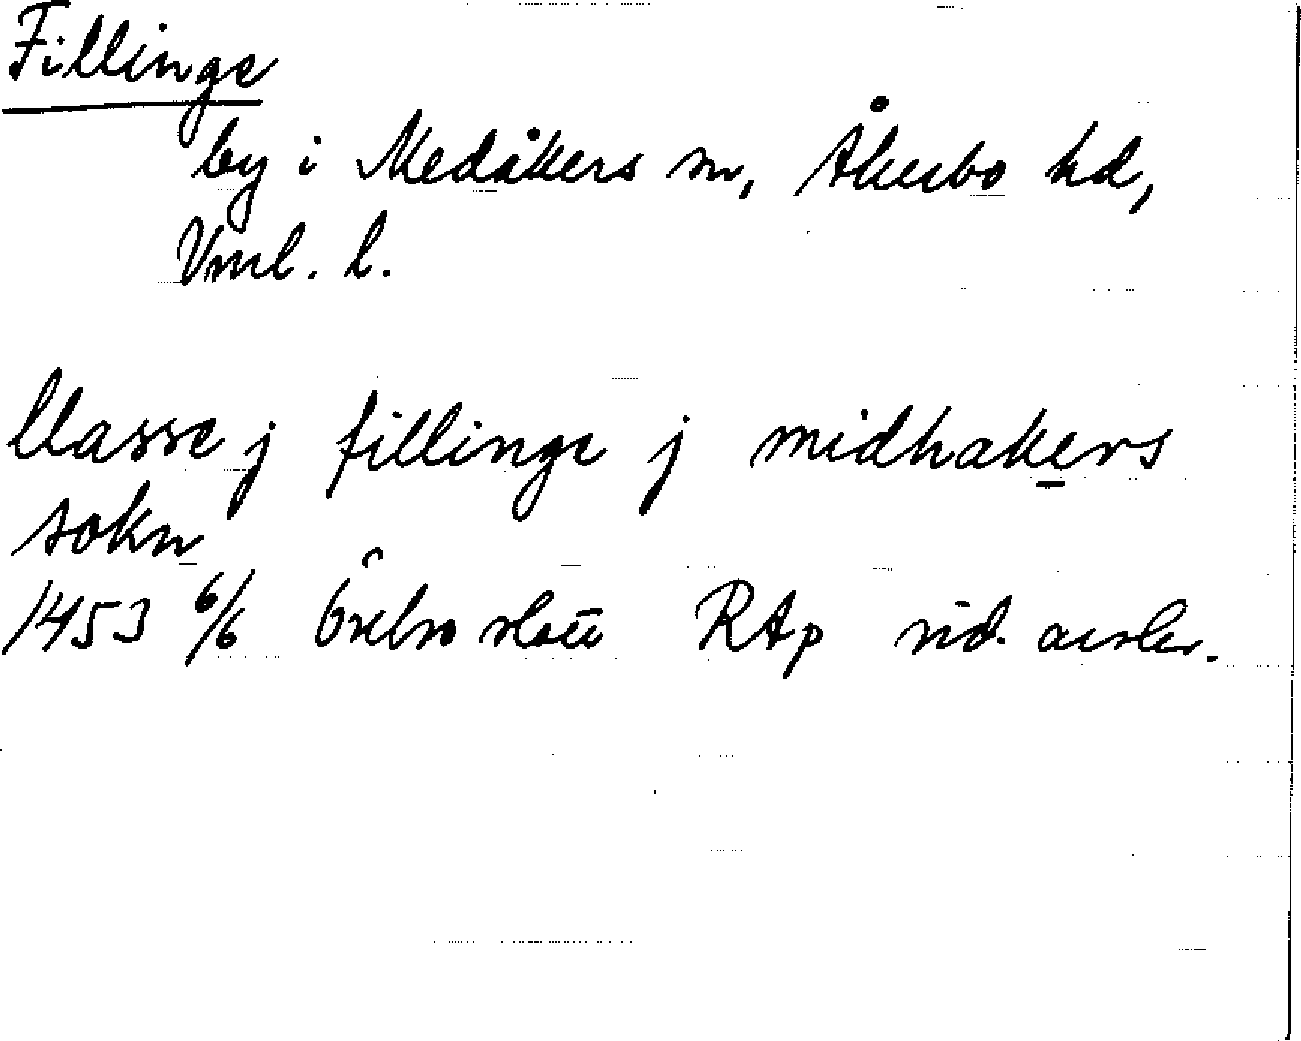 Fillinge
by i Medåkers sn, Åkerbo hd,
Vml. l.
Classe j fillinge j midhakers
sokn
1453 6/6 Örebro slott RAp sid. avskr.